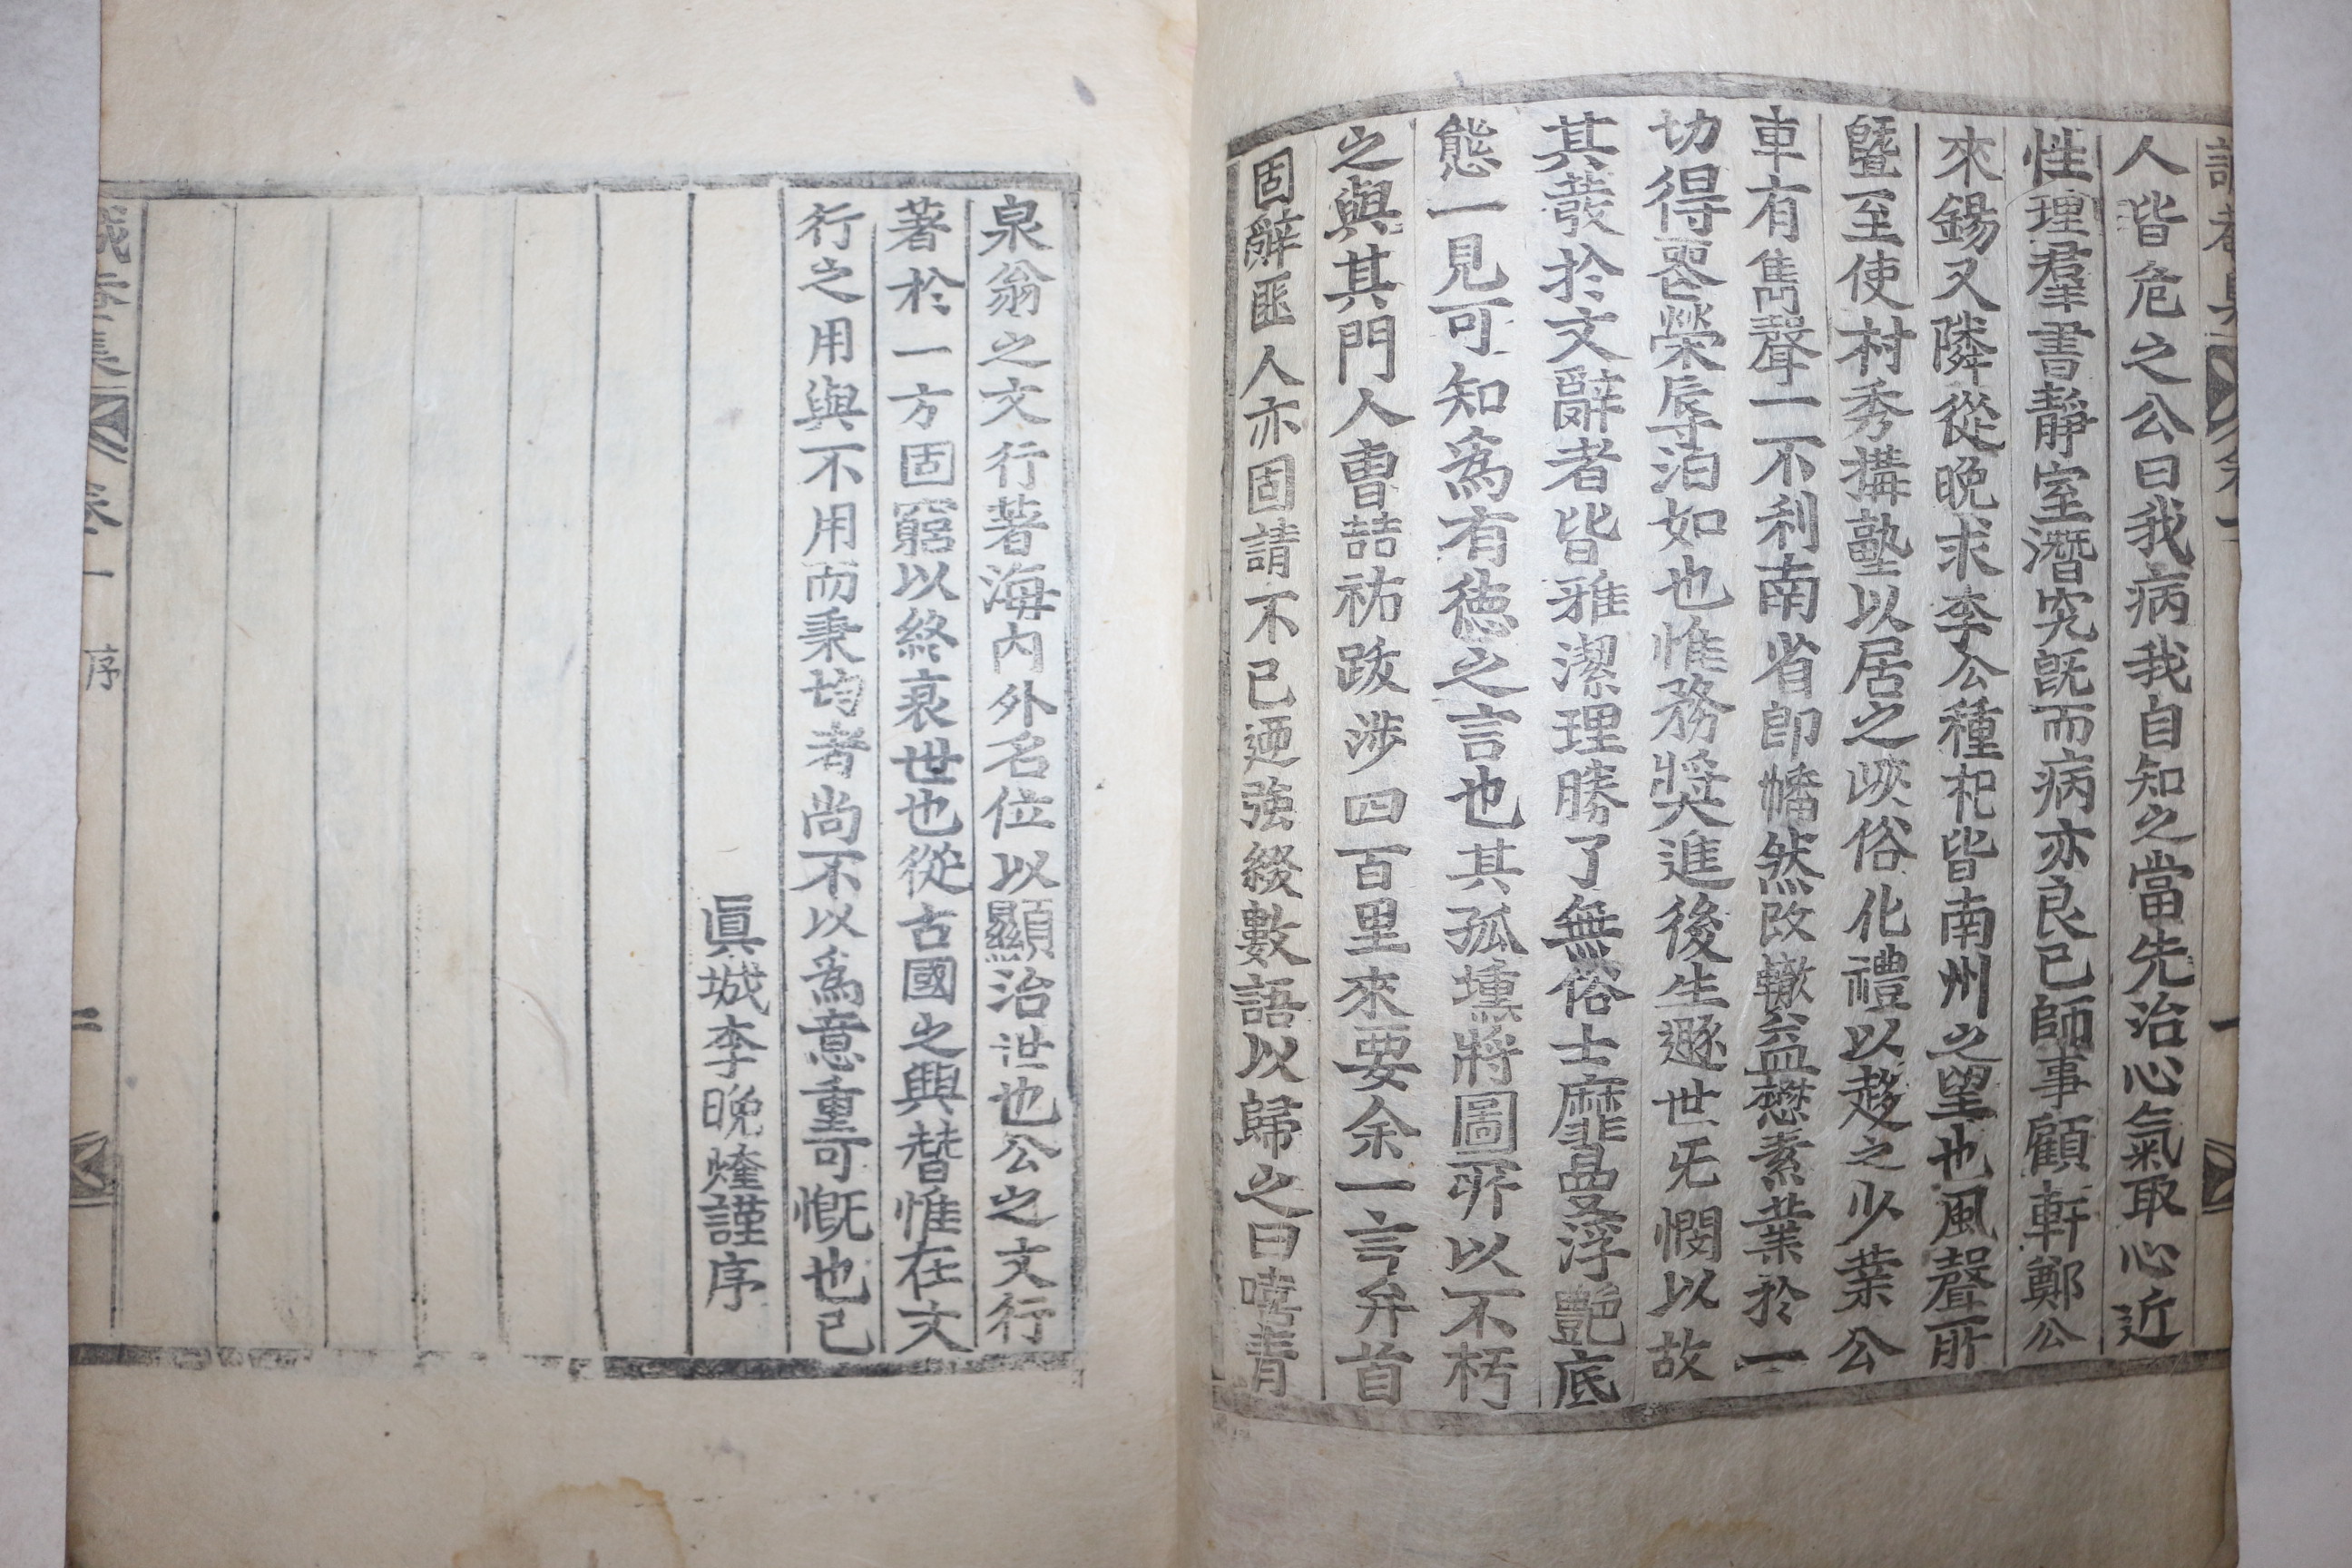 人皆危之公曰我病我自知之當先治心氣取心近
性理羣書靜室潛究旣而病亦良已師事顧軒鄭公
來錫又隣從晩求李公種杞皆南州之望也風聲所
曁至使村秀搆塾以居之峽俗化禮以趍之少業公
車有雋聲一不利南省卽幡然改轍益懋素業於一
切得喪榮辱泊如也惟務奬進後生遯世旡憫以故
其發於文辭者皆雅潔理勝了無俗士靡曼浮艶底
態一見可知爲有德之言也其孤壎將圖所以不朽
之與其門人曺喆祐跋涉四百里來要余一言弁首
固辭匪人亦固請不已迺强綴數語以歸之曰嘻靑
泉翁之文行著海內外名位以顯治世也公之文行
著於一方固窮以終衰世也從古國之興替惟在文
行之用與不用而秉均者尚不以爲意重可慨也已
眞城李晩煃謹序
卷一 序
二